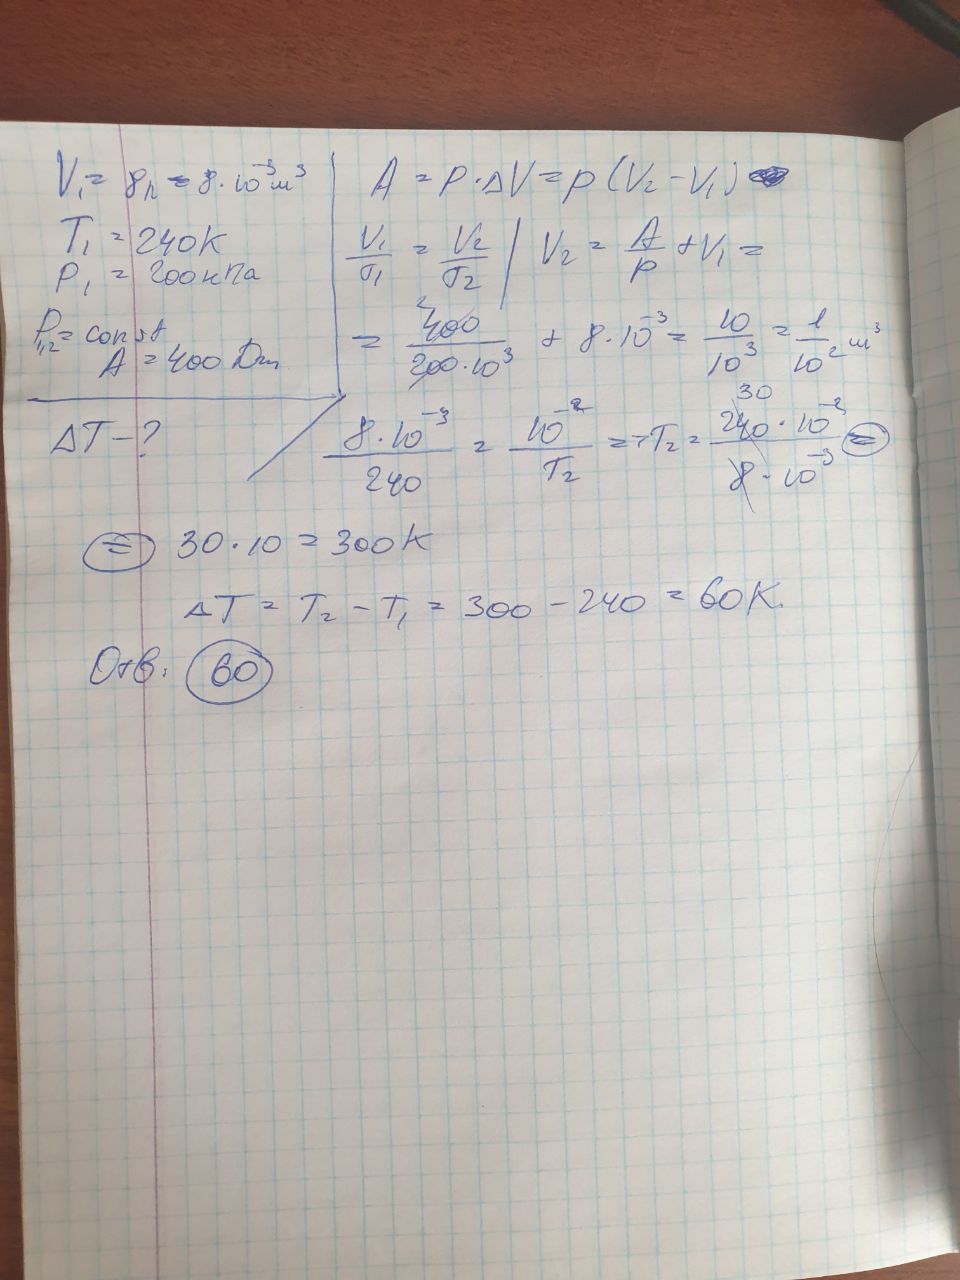 V₁ = 8л = 8·10⁻³м³
T₁ = 240К
P₁ = 200кПа
P₁,₂ = const
A = 400 Дж
ΔT - ?
A = P·ΔV = p(V₂ - V₁)
V₁/T₁ = V₂/T₂ | V₂ = A/p + V₁ =
= 400/200·10³ + 8·10⁻³ = 10/10³ = 1/10² м³
8·10⁻³/240 = 10⁻²/T₂ => T₂ = 240·10⁻²/8·10⁻³ =
= 30·10 = 300К
ΔT = T₂ - T₁ = 300 - 240 = 60К.
Отв: 60